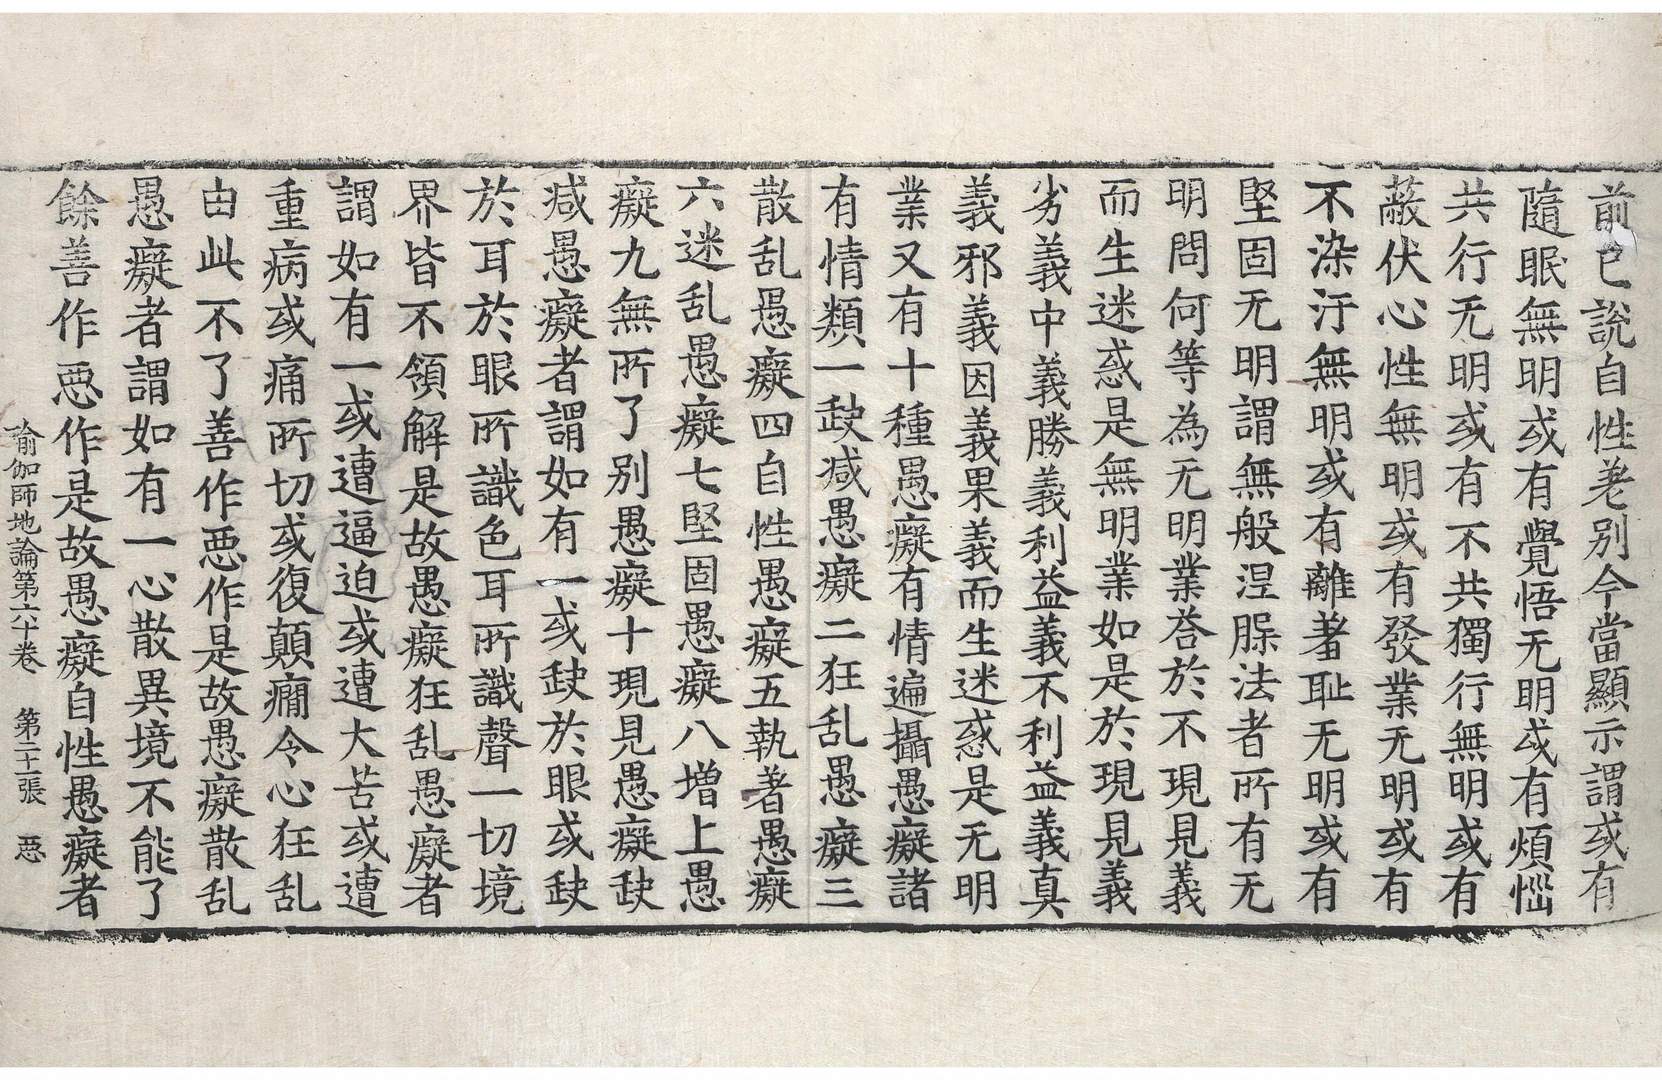 前已說自性差別今當顯示謂或有
隨眠無明或有覺悟无明或有煩惱
共行无明或有不共獨行無明或有
蔽伏心性無明或有發業无明或有
不染汙無明或有離著恥无明或有
堅固无明謂無般涅𦛨法者所有无
明問何等為无明業荅於不現見義
而生迷惑是無明業如是於現見義
劣義中義勝義利益義不利益義真
義邪義因義果義而生迷惑是无明
業又有十種愚癡有情遍攝愚癡諸
有情類一𡙇減愚癡二狂乱愚癡三
散乱愚癡四自性愚癡五執著愚癡
六迷乱愚癡七堅固愚癡八增上愚
癡九無所了別愚癡十現見愚癡𡙇
減愚癡者謂如有一或𡙇於眼或𡙇
於耳於眼所識色耳所識聲一切境
界皆不領解是故愚癡狂乱愚癡者
謂如有一或遭逼迫或遭大苦或遭
重病或痛所切或復顛癎令心狂乱
由此不了善作惡作是故愚癡散乱
愚癡者謂如有一心散異境不能了
餘善作惡作是故愚癡自性愚癡者
瑜伽師地論第六十卷 第二十一張 惡